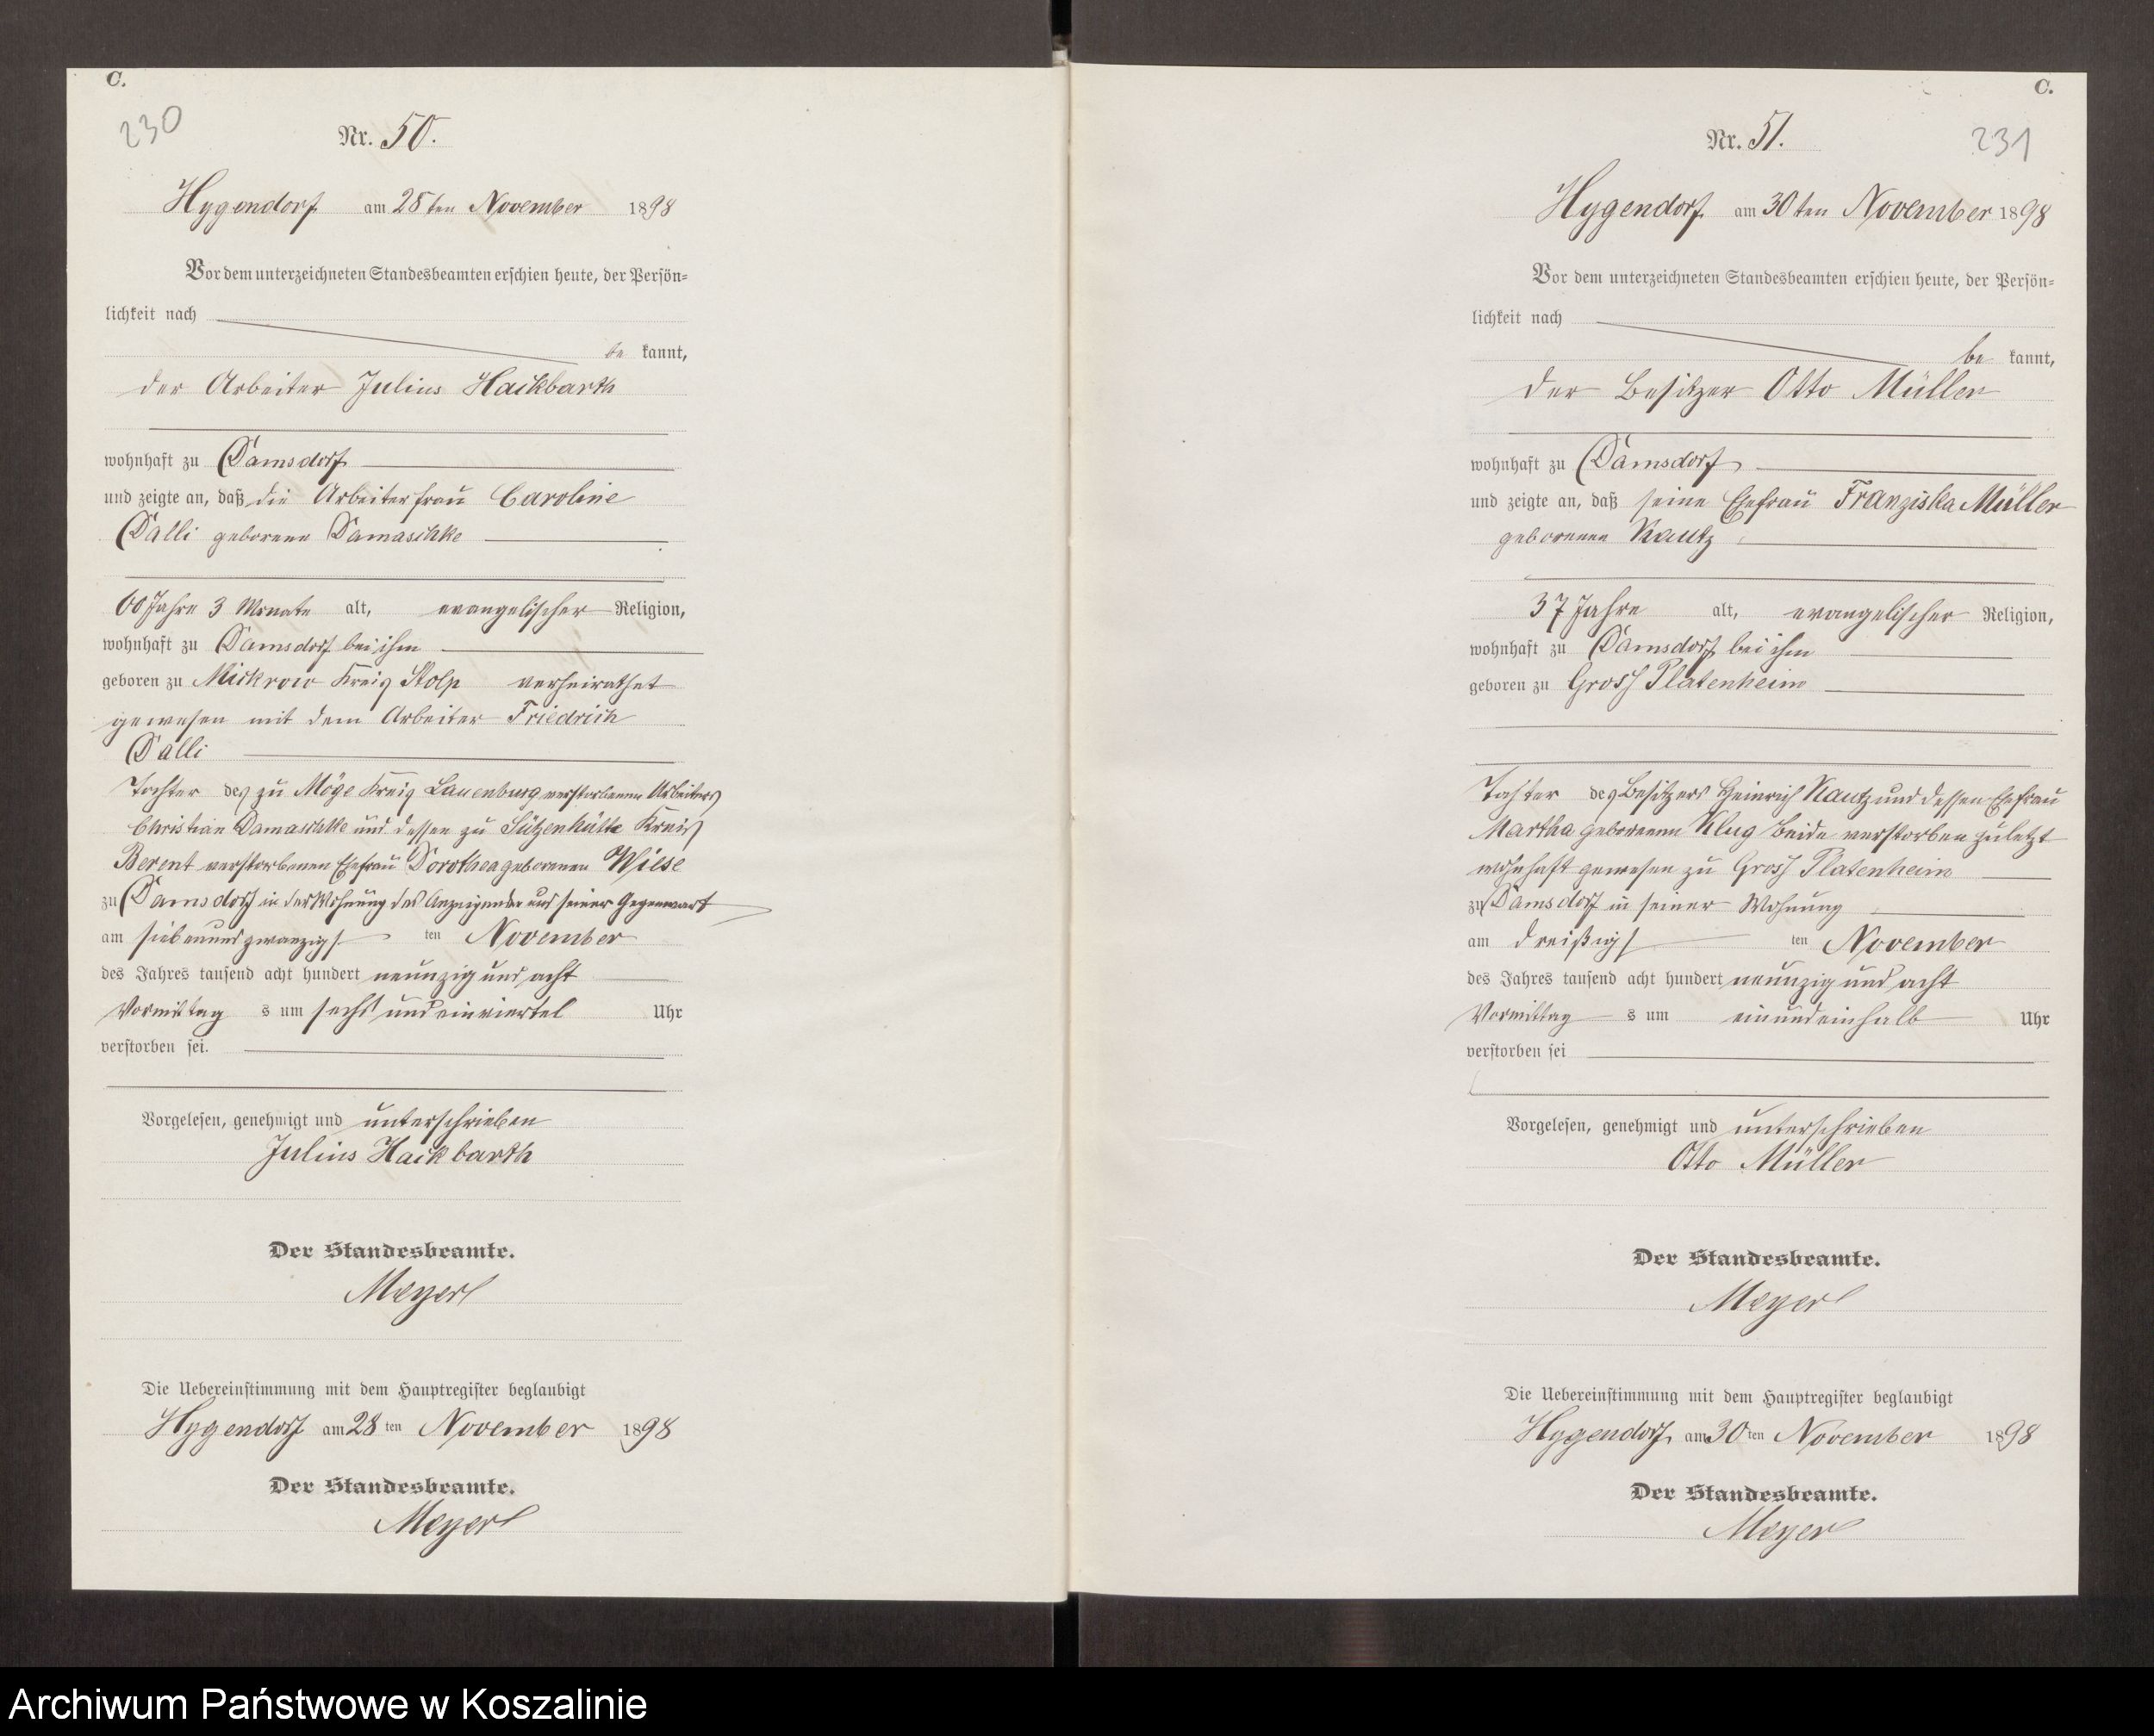 C.
230
Nr. 50.
Hygendorf am 28ten November 1898
Vor dem unterzeichneten Standesbeamten erschien heute, der Persön=
lichkeit nach
be kannt,
der Arbeiter Julius Hackbarth
wohnhaft zu Damsdorf
und zeigte an, daß die Arbeiterfrau Caroline
Dalli geborene Damaschke
60 Jahre 3 Monate alt, evangelischer Religion,
wohnhaft zu Damsdorf bei ihm
geboren zu Mickrow Kreis Stolp verheirathet
gewesen mit dem Arbeiter Friedrich
Dalli
Tochter des zu Möge Kreis Lauenburg verstorbenen Arbeiters
Christian Damaschke und dessen zu Kreis
Berent verstorbenen Ehefrau Dorothea geborenen Wiese
zu Damsdorf in der Wohnung des Anzeigenden und seiner Gegenwart
am siebenundzwanzigs ten November
des Jahres tausend acht hundert neunzig und acht
Vormittag s um sechs und einviertel Uhr
verstorben sei.
Vorgelesen, genehmigt und unterschrieben
Julius Hackbarth
Der Standesbeamte.
Meyer
Die Uebereinstimmung mit dem Hauptregister beglaubigt
Hygendorf am 28 ten November 1898
Der Standesbeamte.
Meyer
C.
231
Nr. 51.
Hygendorf am 30ten November 1898
Vor dem unterzeichneten Standesbeamten erschien heute, der Persön=
lichkeit nach
be kannt,
der Besitzer Otto Müller
wohnhaft zu Damsdorf
und zeigte an, daß seine Ehefrau Franziska Müller
geborenen Kautz
37 Jahre alt, evangelischer Religion,
wohnhaft zu Damsdorf bei ihm
geboren zu Gross Platenheim
Tochter des Besitzers Heinrich Kautz und dessen Ehefrau
Martha geborenen Klug beide verstorben zuletzt
wohnhaft gewesen zu Gross Platenheim
zu Damsdorf in seiner Wohnung
am dreißigs ten November
des Jahres tausend acht hundert neunzig und acht
Vormittag s um einundeinhalb Uhr
verstorben sei
Vorgelesen, genehmigt und unterschrieben
Otto Müller
Der Standesbeamte.
Meyer
Die Uebereinstimmung mit dem Hauptregister beglaubigt
Hygendorf, am 30 ten November 1898
Der Standesbeamte.
Meyer
Archiwum Państwowe w Koszalinie